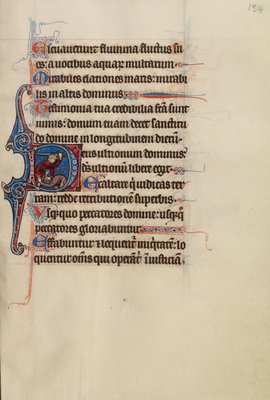 134
leuauerunt flumina fluctus su
os: a uocibus aquar multarum
Mirabiles elationes maris: mirabi
lis in altis dominus
Testimonia tua credibilia facta sunt
nimis: domum tuam decet sanctitu
do domine in longitudinem dierum
Deus ultionum dominus
deus ultionum libere egit
Exaltare qui iudicas ter
ram: redde retributionem superbis
Usquequo peccatores domine: usquequo
peccatores gloriabuntur
Effabuntur et loquentur iniquitatem: lo
quentur omnes qui operantur iniusticiam